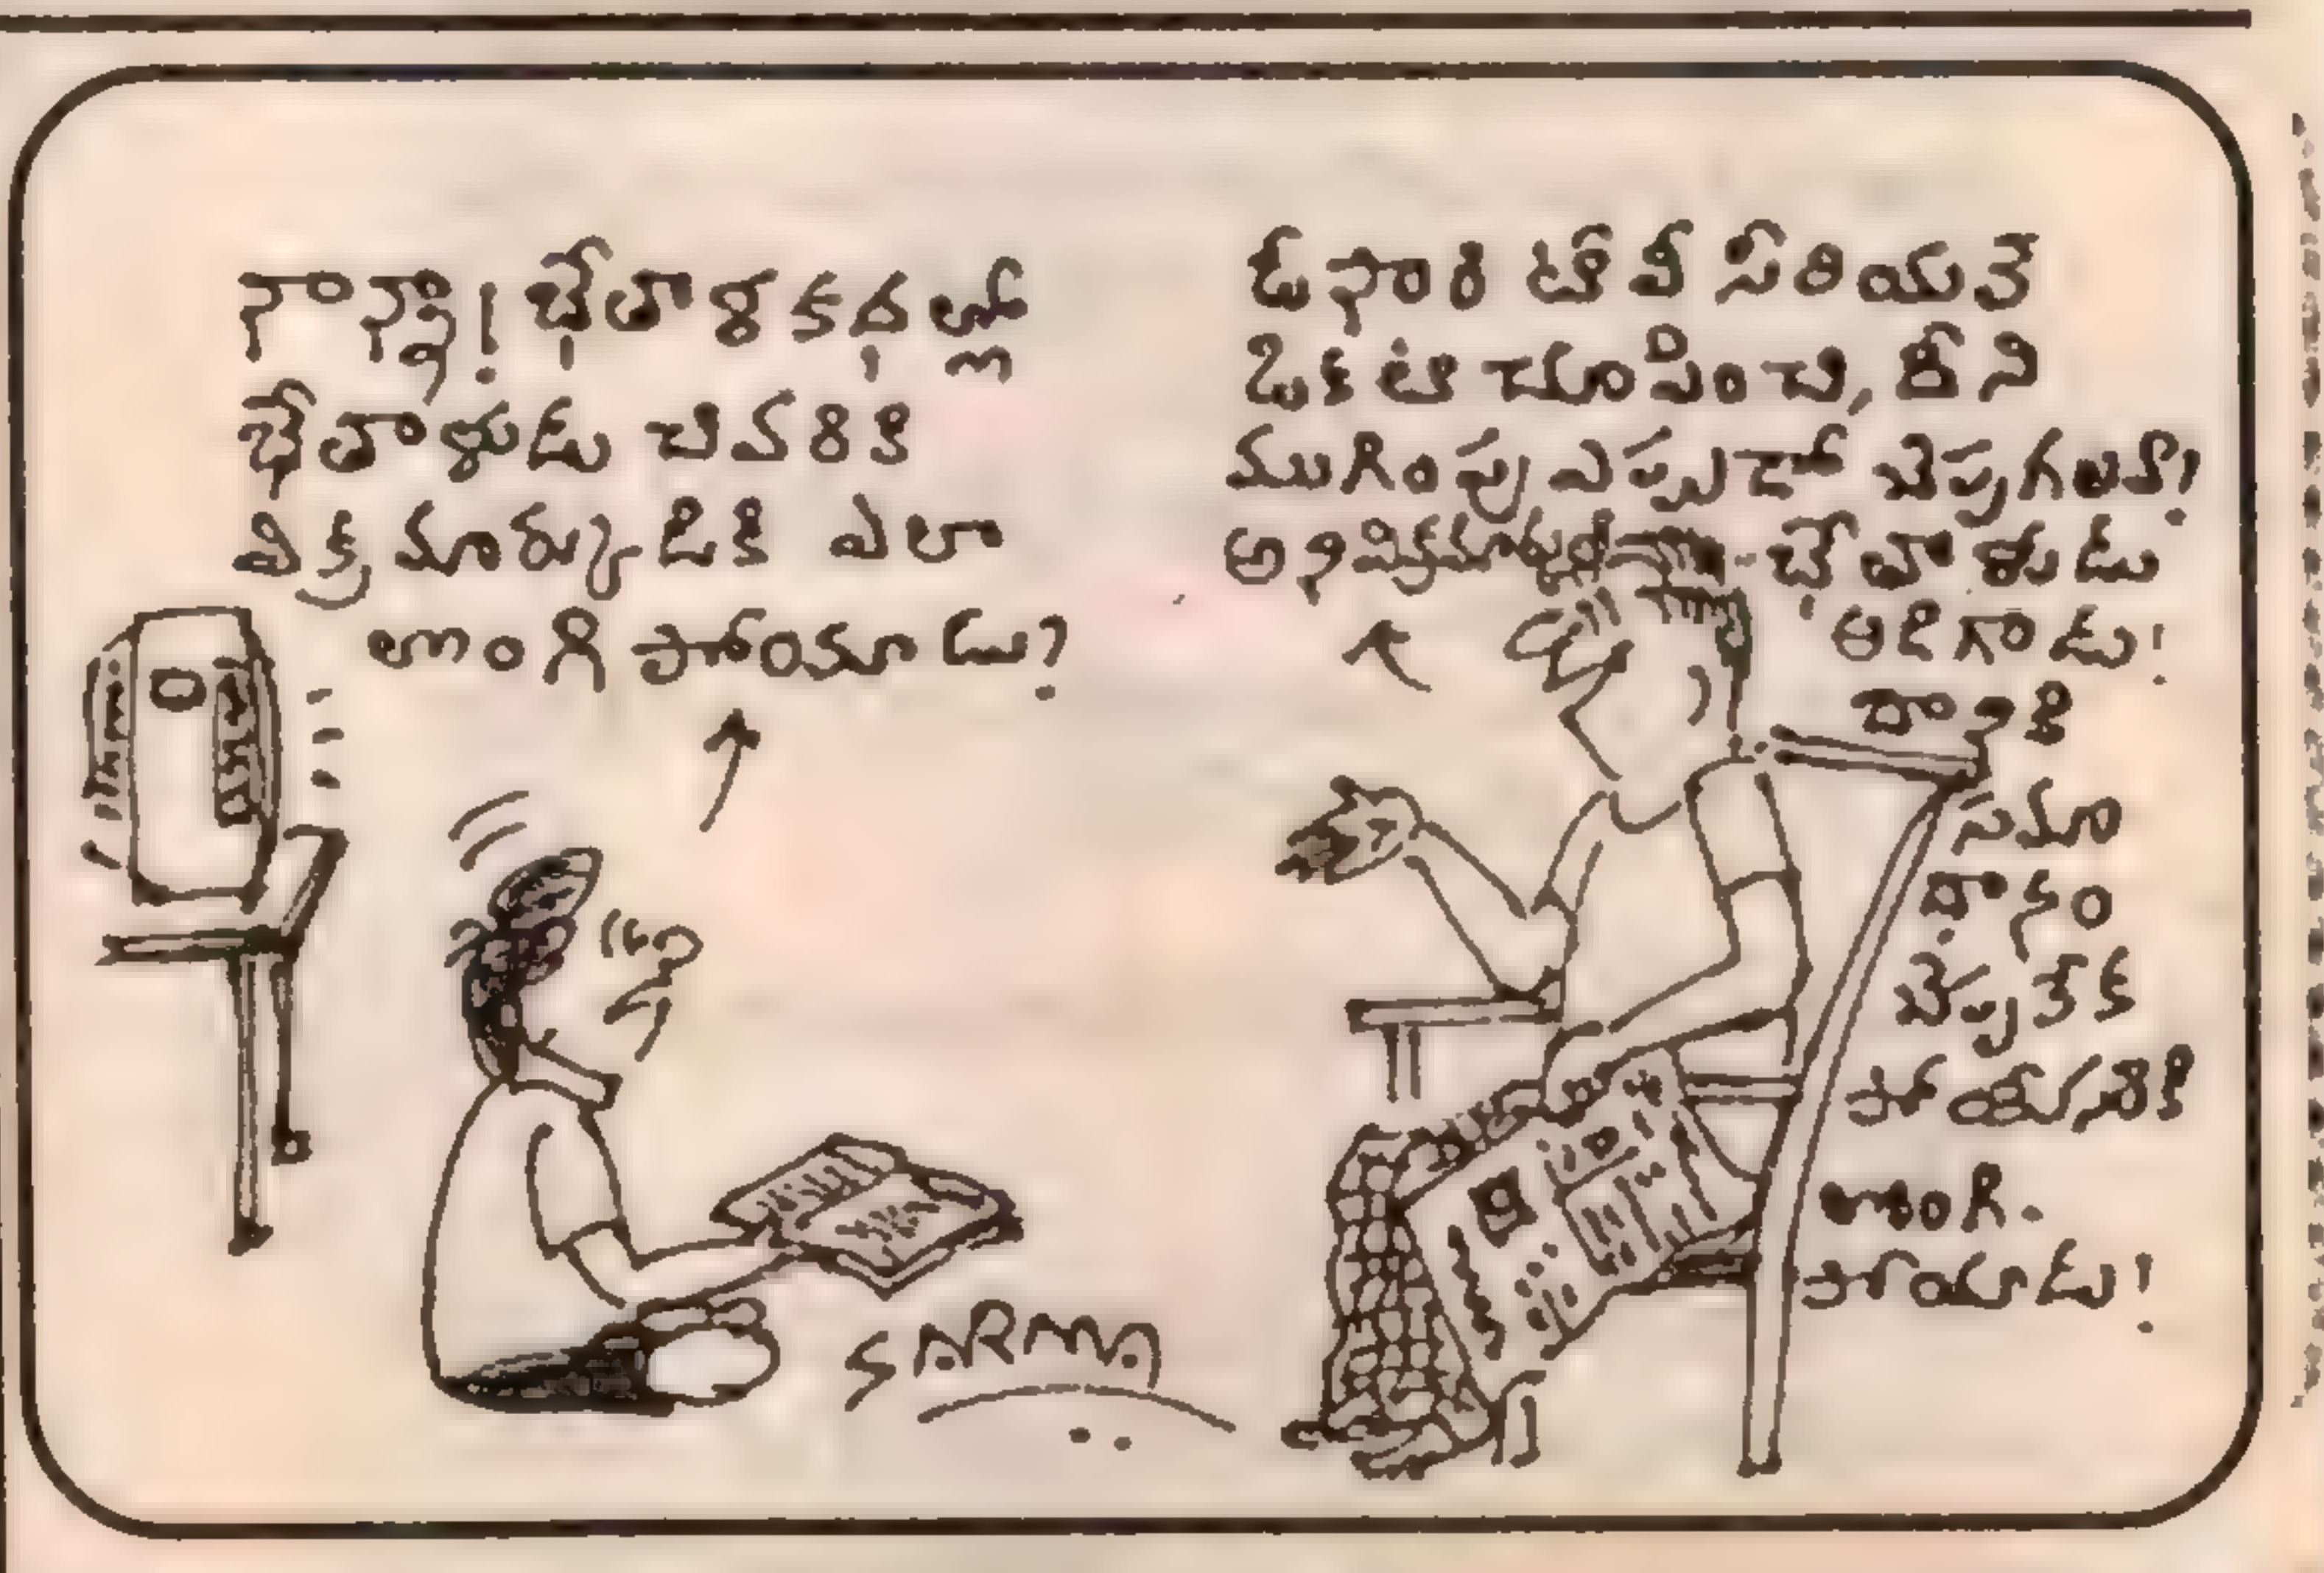 నాన్నా! భేతాళ కథల్లో
భేతాళుడు చివరికి
విక్రమార్కుడికి ఎలా
లొంగి పోయాడు?
ఓసారి టీవీ సీరియల్
ఒకటి చూపించి, దీని
ముగింపు ఎప్పుడో చెప్పగలవా!
అని విక్రమార్కుడ్ని భేతాళుడు
అడిగాడు!
దానికి
సమా
ధానం
చెప్పలేక
పోయేసరికి
లొంగి
పోయాడు!
SARMA